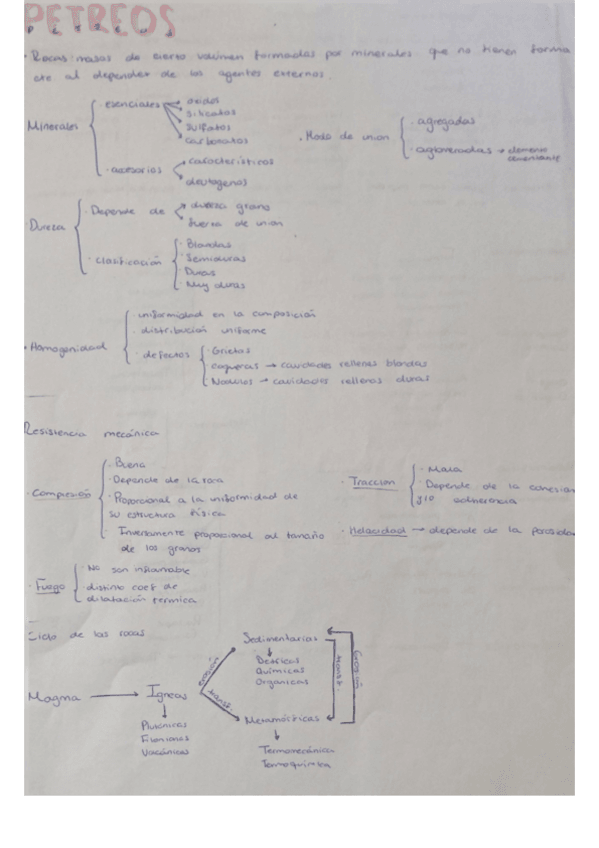 PETREOS
· Rocas masas de cierto volumen formadas por minerales que no tienen forma
etc al depender de los agentes externos.
Minerales
· esenciales
oxidos
silicatos
sulfatos
carbonatos
· accesorios
característicos
deutogenos
· Modo de union
· agregadas
· aglomeradas → elemento cementante
· Dureza
· Depende de
dureza grano
fuerza de union
· clasificación
· Blandas
· Semiduras
· Duras
· Muy duras
· Homogenidad
· uniformidad en la composición
· distribución uniforme
· defectos
· Grietas
coqueras → cavidades rellenas blandas
· Nodulos → cavidades rellenas duras
Resistencia mecánica
· Compresión
· Buena
· Depende de la roca
· Proporcional a la uniformidad de
su estructura física
· Inversamente proporcional al tamaño
de los granos
· Traccion
· Mala
· Depende de la cohesion
y/o adherencia
· Heladicidad → depende de la porosidad
· Fuego
· No son inflamable
· distinto coef de
dilatación termica
Ciclo de las rocas
Magma → Igneas
Plutónicas
Filonianas
Volcánicas
erosión
transf.
Sedimentarias
Detríticas
Químicas
Organicas
Metamórficas
Termomecánica
Termoquimica
transf.
Erosión